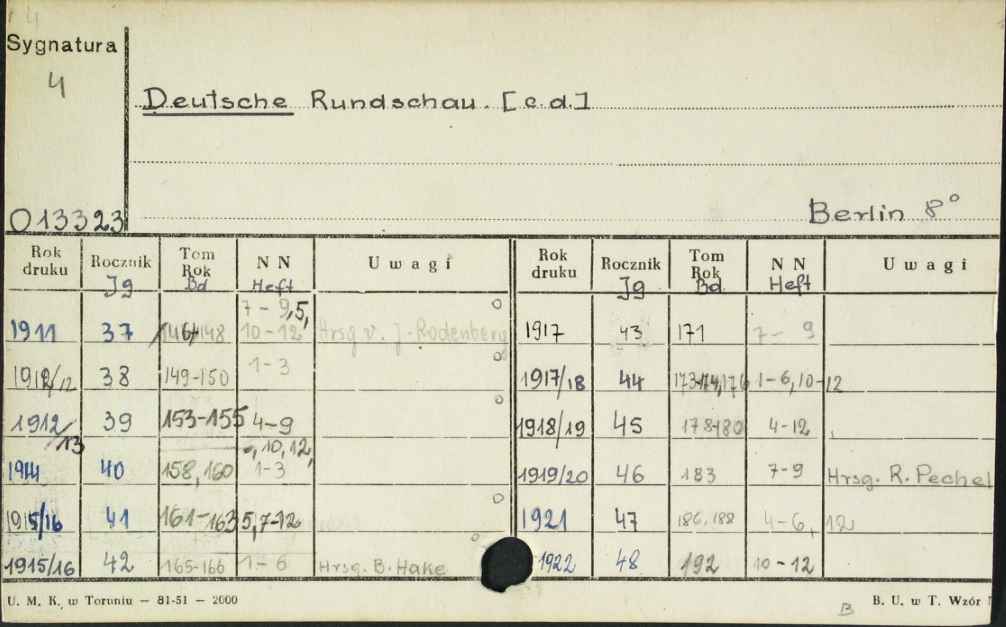 4
Sygnatura
4
Deutsche Rundschau. [c.d.]
013323
Berlin 8°
Rok druku Rocznik Tom Rok N N Uwagi Rok druku Rocznik Tom Rok N N Uwagi
Jg Bd Heft Jg Bd. Heft
7-9,5,
1911 37 146/148 10-12 Hrsg v. J. Rodenberg 1917 43 171 7-9
1-3
1912/12 38 149-150 1917/18 44 173-174,176 1-6,10-12
1912/13 39 153-155 4-9 1918/19 45 178-180 4-12
, 10, 12,
1914 40 158,160 1-3 1919/20 46 183 7-9 Hrsg. R. Pechel
1915/16 41 161-163 5,7-12 1921 47 186,188 4-6, 12
1915/16 42 165-166 1-6 Hrsg. B. Hake 1922 48 192 10-12
U. M. K. w Toruniu — 81-51 — 2000
B
B. U. w T. Wzór